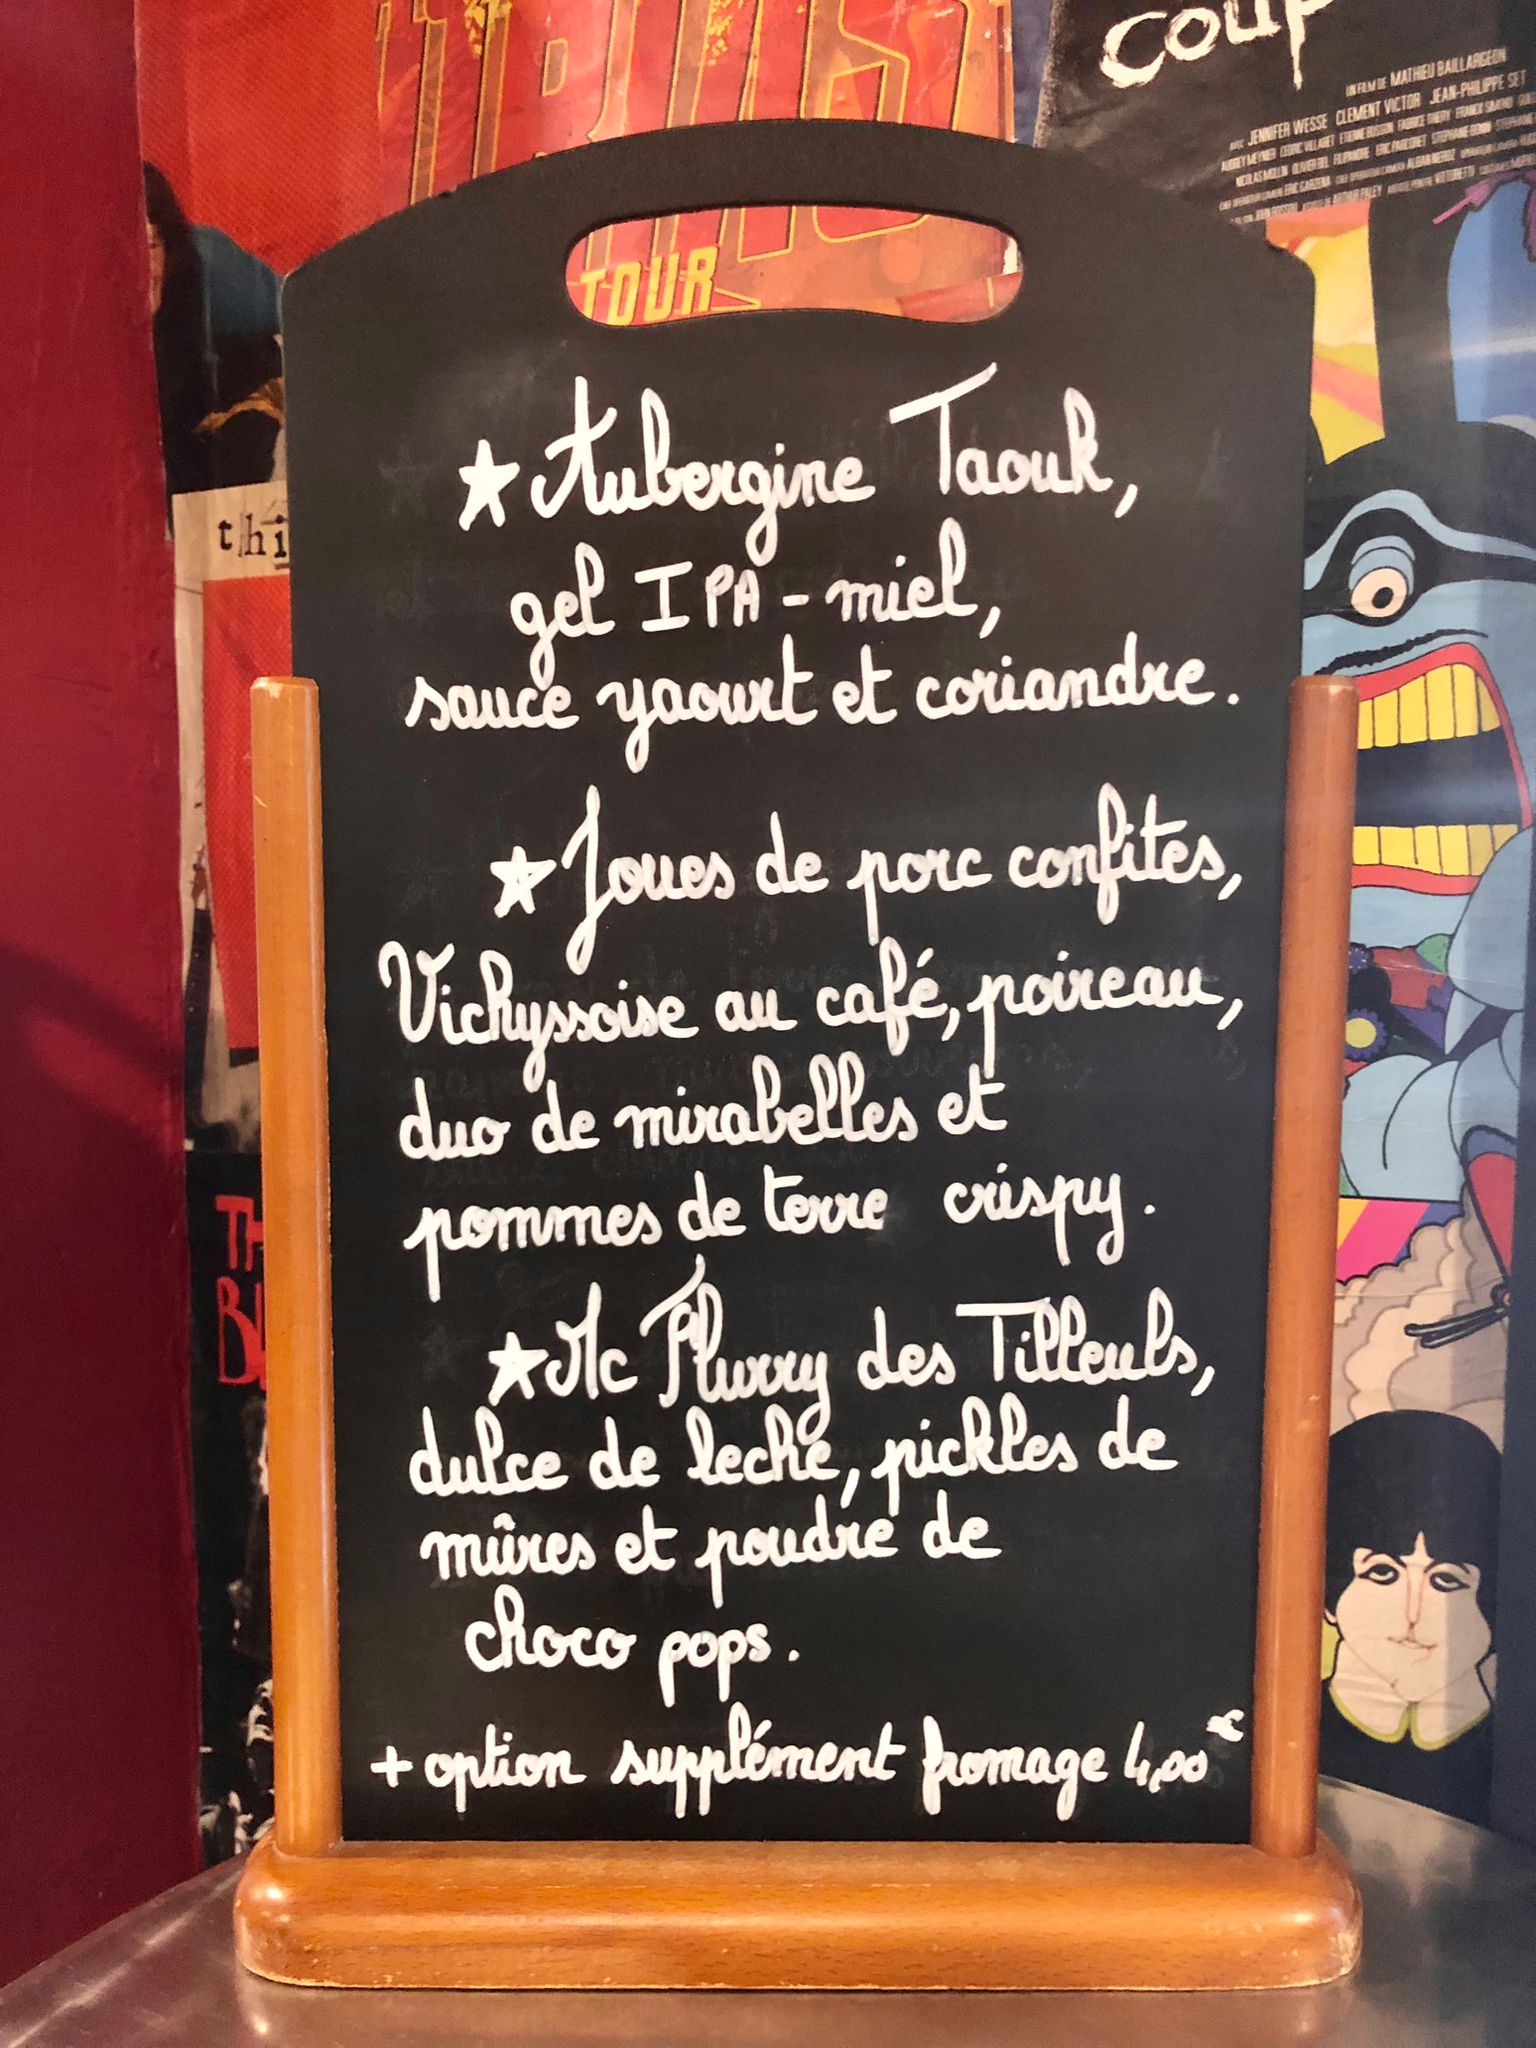 coup
UN FILM DE MATHIEU BAILLARGEON
AVEC JENNIFER WESSE CLEMENT VICTOR JEAN-PHILIPPE SET
TOUR
★ Aubergine Taouk,
gel IPA - miel,
sauce yaourt et coriandre.
★ Joues de porc confites,
Vichyssoise au café, poireau,
duo de mirabelles et
pommes de terre crispy.
★ Mc Flurry des Tilleuls,
dulce de leche, pickles de
mûres et poudre de
choco pops.
+ option supplément fromage 4,00€
thi
TH
BL